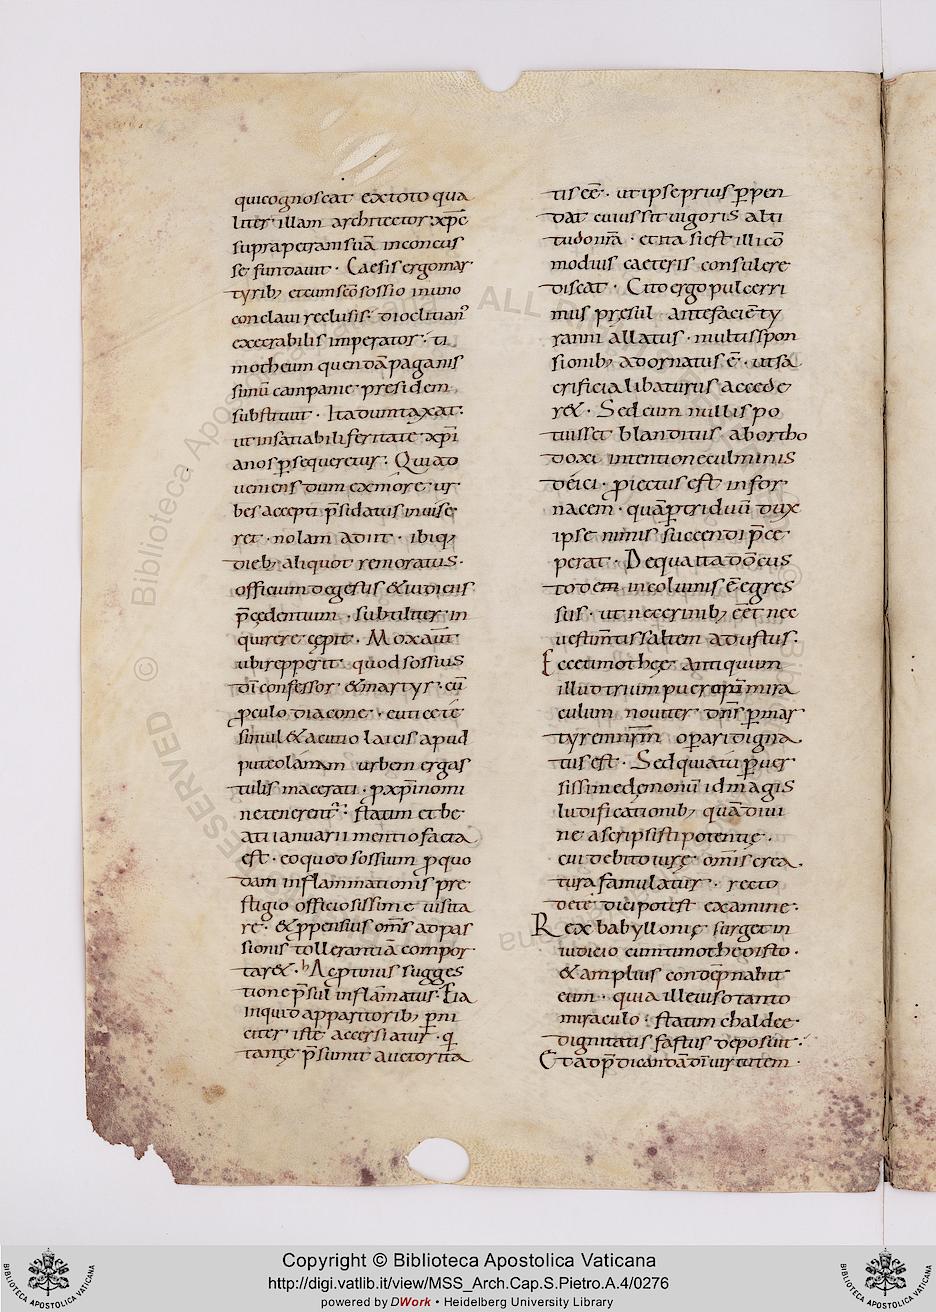 quicognoscat extoto qua
liter illam architector xp̄c
suprapetramsuā inconcus
se fundauit · Caesisergomar
tyrib; etcumscōsossio inuno
conclaui reclusis· dioclitian᾽
execrabilis imperator · ti
motheum quendāpaganis
simū campanie presidem
substituit · Itadumtaxat·
ut insatiabiliferitate xp̄i
anos p̱sequeretur · Quiad
ueniens dum exmore ur
bes accepti p̄sidatus inuise
ret · nolam adiit · ibiq;
dieb; aliquot remoratus·
officium degestus &iudicus
p̄cedentium · subtiliter in
quirere cępit · Moxaūt
ubirepperit quodsossius
dī confessor &martyr · cū
ꝓculo diacone · euticete
simul &acutio laicis apud
puteolanam urbem ergas
tulis macerati · ꝓxp̄inomi
netenerent᾽· statim etbe
ati ianuarii mentiofacta
est · eoquod sossium ꝓquo
dam inflammationis pre
stigio officiosissime uisita
re · &ꝓpensius om̄s adpas
sionis tollerantiā compor
tar& · hAcptonis sugges
tione p̄sul inflāmatus· Eia
inquid apparitorib; p̱ni
citer iste accersiatur · q
tantę p̄sumit auctorita
tis eē̄· utipseprius p̱pen
dat cuius sit uigoris alti
tudo n̄ra · et ita si est illi cō
modius caeteris consulere
discat · Cito ergo pulcerri
mus pręsul antefaciē ty
ranni allatus · multis spon
sionib; adornatus ē̄ · utsa
crificia libaturus accede
r& · Sed cum nullis po
tuisset blanditiis abortho
doxi intentione culminis
deici · ꝓiectus est in for
nacem · quāp̱triduū dux
ipse nimis succendi p̄ce
perat · De qua ita dō eius
todem incolumis ē̄ egres
sus · ut nec crinib; eēt nec
uestim̄tis saltem adustus·
Ecce timotheę antiquum
illud trium pueroꝝ mira
culum nouiter dn̄s p̱mar
tyrem n̄rm operari digna
tus est · Sed quia tu p̱uer
sissime demonū id magis
ludificationib; quādiui
ne ascripsisti potentię ·
cui debito iurę omīs crea
tura famulatur · recto
de te dici potest examine·
Rex babyllonię surget in
iudicio cum timotheo isto ·
&amplius condēpnabit
eum · quia ille uiso tanto
miraculo · statim chaldee
dignitatis fastus deposuit ·
Et ad p̄dicandā dī uirtutem ·
Copyright © Biblioteca Apostolica Vaticana
http://digi.vatlib.it/view/MSS_Arch.Cap.S.Pietro.A.4/0276
powered by DWork • Heidelberg University Library